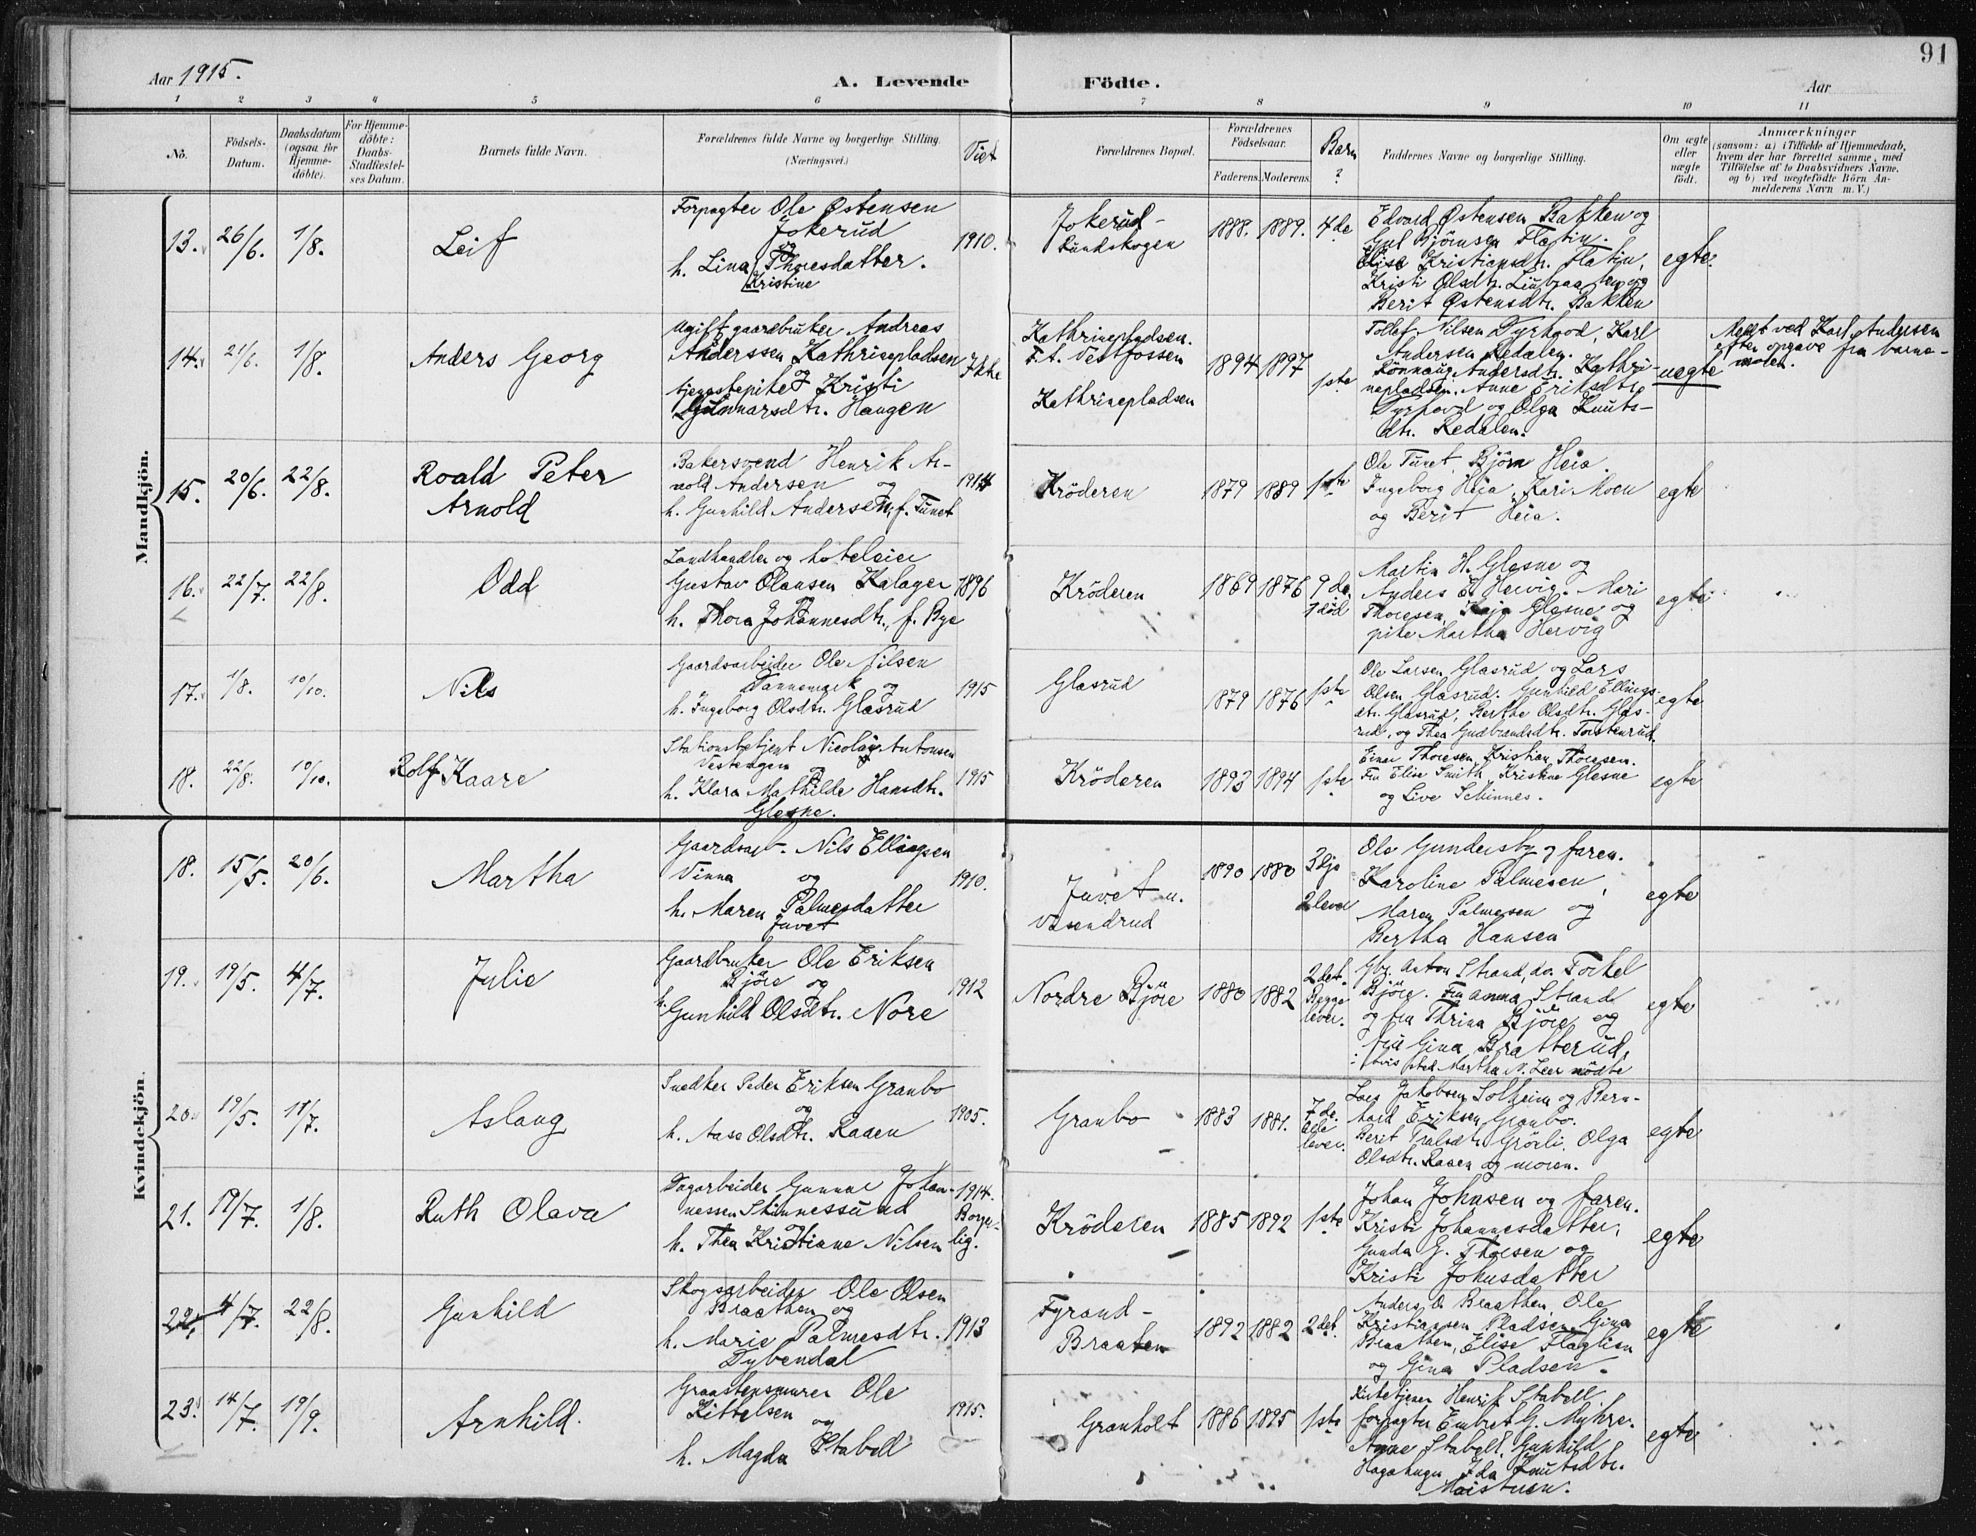 91
Aar 1915.
A. Levende Födte.
Aar
1 2 3 4 5 6 7 8 9 10 11
No.
Födsels-
Datum.
Daabsdatum
(ogsaa for
Hjemme-
döbte).
For Hjemme-
döbte:
Daabs-
Stadfæstel-
ses Datum.
Barnets fulde Navn.
Forældrenes fulde Navne og borgerlige Stilling.
(Næringsvei.)
Viet
Forældrenes Bopæl.
Forældrenes
Födselsaar.
Faderens. Moderens.
Barn
?
Faddernes Navne og borgerlige Stilling.
Om ægte
eller
uægte
födt.
Anmærkninger
(saasom: a) i Tilfælde af Hjemmedaab,
hvem der har forrettet samme, med
Tilföielse af to Daabsvidners Navne.
og b) ved uægtefödte Börn An-
melderens Navn m. V.)
Mandkjön.
13. 26/6. 1/8.
Leif
Forpagter Ole Østensen
Jokerud
og
h. Lina Thoresdatter.
Kristine
1910.
Jokerud-
Lundskogen
1888. 1889. 4de
Edvard Østensen Bakken og
Gul Björnsen Flatin.
Elise Kristiansdtr. Flatin,
Kristi Olsdtr. Linbraaten og
Berit Østensdtr. Bakken
egte.
14. 21/6. 1/8.
Anders Georg
Ugift gaardbruker Andreas
Anderssen Kathrinepladsen
tjenestepike Kristi
Gunnarsdtr. Haugen
Ikke
Kathrinepladsen.
F. A. Vestfossen
Kathrinepladsen
1894 1897 1ste
Tollef Nilsen Tyrhovd, Karl
Andersen Redalen.
Rönnaug Andersdtr. Kathri-
nepladsen, Anne Eriksdtr.
Tyrhovd og Olga Knuts-
dtr. Redalen.
uegte
Meldt ved Karl Andersen
efter opgave fra barne-
moren.
15. 20/6. 22/8.
Roald Peter
Arnold
Bakersvend Henrik Ar-
nold Andersen og
h. Gunhild Andersen, f. Tunet
1914
Kröderen
1879 1889 1ste
Ole Tunet, Björn Heia.
Ingeborg Heia, Kari Moen
og Berit Heia.
egte
16. 22/7. 22/8.
Odd
Landhandler og hoteleier
Gustav Olausen Kalager
og
h. Thora Johannesdtr., f. Bye
1896
Kröderen
1869 1876 9de
1 död
Martin H. Glesne og
Anders E. Hervig. Mari
Thoresen, Kaja Glesne og
pike Martha Hervig
egte
17. 1/8. 10/10.
Nils
Gaardsarbeider Ole Nilsen
Dannemark og
h. Ingeborg Olsdtr. Glasrud
1915
Glasrud
1879 1876 1ste
Ole Larsen Glasrud og Lars
Olsen Glasrud. Gunhild Ellings-
dtr. Glasrud, Berthe Olsdtr. Glas-
rud, og Thea Gudbrandsdtr. Torstenrud.
egte
18. 22/8. 10/10.
Rolf Kaare
Stationsbetjent Nicolay Antonsen
Vestengen og
h. Klara Mathilde Hansdtr.
Glesne.
1915
Kröderen
1893 1894 1ste
Einar Thoresen, Kristian Thoresen.
Fru Elise Smith, Kristine Glesne
og Live Schinnes.
egte
Kvindekjön.
18. 15/5. 20/6.
Martha
Gaardsarb. Nils Ellingsen
Vinna og
h. Maren Palmesdatter
Juvet
1910.
Juvet u.
Vasendrud
1890 1880 3dje
2 lever
Ole Gundersby og faren.
Karoline Palmesen,
Maren Palmesen og
Bertha Hansen
egte
19. 19/5. 4/7.
Julie
Gaardbruker Ole Eriksen
Björe og
h. Gunhild Olsdtr. Nore
1912
Nordre Björe
1880 1882
2det.
Begge
lever.
Gbr. Anton Strand, do. Torkel
Björe. Fru Anna Strand
og fru Thrina Björe og
fru Gina Bratterud,
i hvis sted Martha N. Leer mödte
egte
20. 19/5. 11/7.
Aslaug
Snedker Peder Eriksen Granbo
og
h. Aase Olsdtr. Raaen
1905.
Granbo
1883 1881.
7de.
Alle
lever.
Lars Jakobsen Solheim og Bern-
hard Eriksen Granbo.
Berit Truls­dtr. Grösli. Olga
Olsdtr. Raaen og moren.
egte
21. 19/7. 1/8.
Ruth Olava
Dagarbeider Gunnar Johan-
nessen Skinnessund
h. Thea Kristiane Nilsen
1914.
Borger-
lig.
Kröderen
1885 1892 1ste
Johan Johnsen og faren.
Kristi Johannesdatter,
Gunda G. Thoresen og
Kristi Johnsdatter
egte
22. 4/7. 22/8.
Gunhild
Skogsarbeider Ole Olsen
Braathen og
h. Marie Palmesdtr.
Dybendal
1913
Fyrand-
Braaten
1892 1882 2det.
Anders O. Braathen, Ole
Kristiansen Pladsen. Gina
Braathen, Elise Flaglien
og Gina Pladsen.
egte
23. 14/7. 19/9.
Arnhild.
Graastensmurer Ole
Kittelsen og
h. Magda Stabell
1915.
Granholt
1886 1895 1ste
Kirketjener Henrik Stabell,
forpagter Embret G. Myhre.
Anne Stabell, Gunhild
Hagahugen, Ida Knutsdtr.
Moistuen.
egte